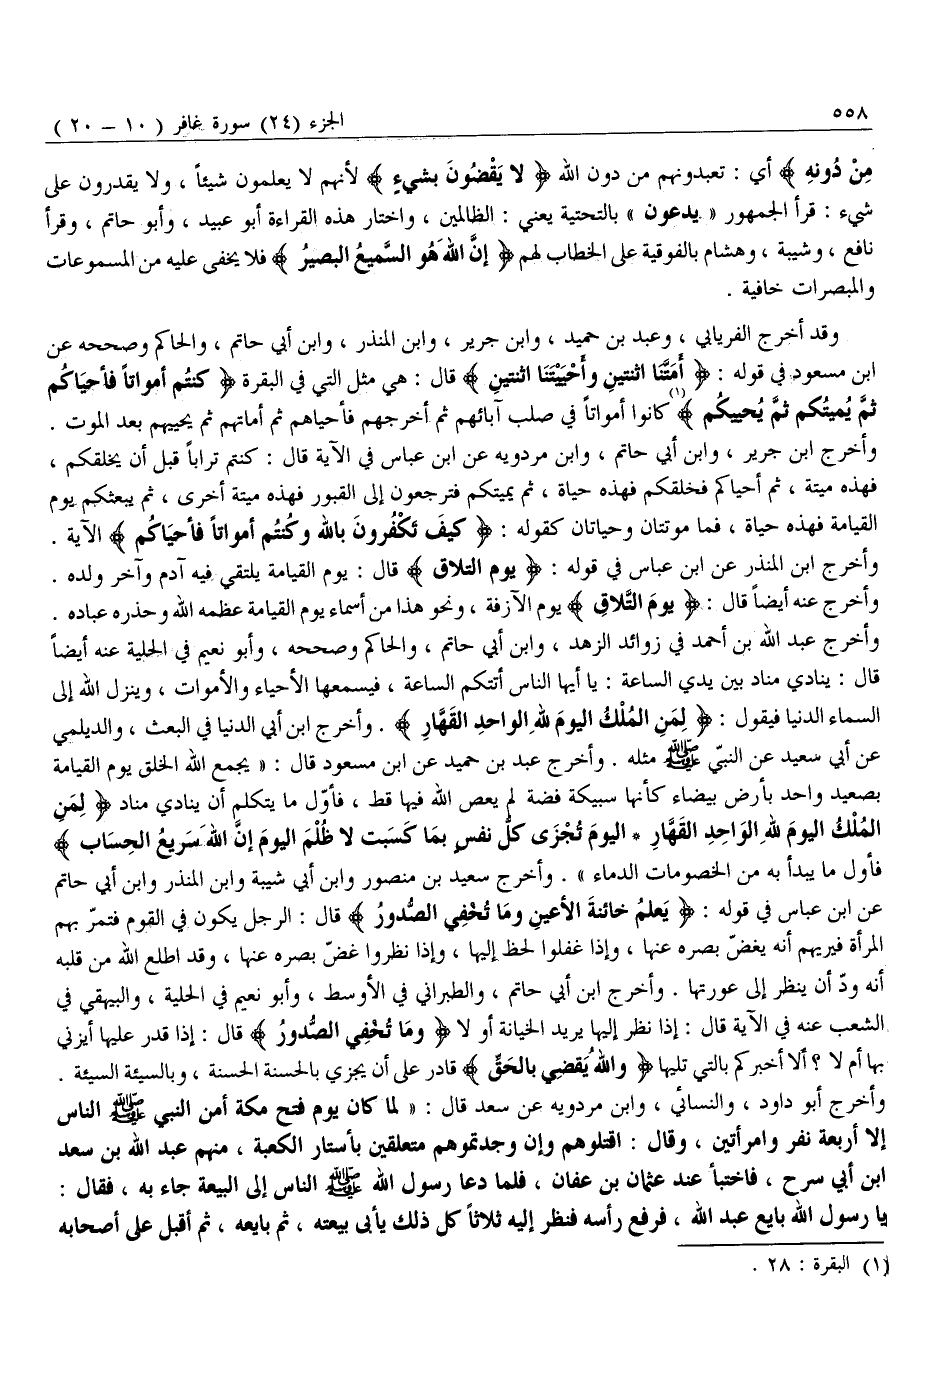 ٥٥٨
الجزء (٢٤) سورة غافر ( ١٠ – ٢٠ )
مِنْ دُونِهِ ﴾ أي : تعبدونهم من دون الله ﴿ لا يَقْضُونَ بشيءٍ ﴾ لأنهم لا يعلمون شيئاً ، ولا يقدرون على
شيء : قرأ الجمهور « يدعون » بالتحتية يعني : الظالمين ، واختار هذه القراءة أبو عبيد ، وأبو حاتم ، وقرأ
نافع ، وشيبة ، وهشام بالفوقية على الخطاب لهم ﴿ إنَّ اللهَ هُو السَّميعُ البصيرُ ﴾ فلا يخفى عليه من المسموعات
والمبصرات خافية .
وقد أخرج الفريابي ، وعبد بن حميد ، وابن جرير ، وابن المنذر ، وابن أبي حاتم ، والحاكم وصححه عن
ابن مسعود في قوله : ﴿ أَمَتَّنَا اثنتينِ وأَحْيَيْتَنَا اثنتينِ ﴾ قال : هي مثل التي في البقرة ﴿ كنتُم أمواتاً فأحيَاكُم
ثمَّ يُميتُكم ثمَّ يُحييكُم ﴾(١) كانوا أمواتاً في صلب آبائهم ثم أخرجهم فأحياهم ثم أماتهم ثم يحييهم بعد الموت .
وأخرج ابن جرير ، وابن أبي حاتم ، وابن مردويه عن ابن عباس في الآية قال : كنتم تراباً قبل أن يخلقكم ،
فهذه ميتة ، ثم أحياكم فخلقكم فهذه حياة ، ثم يميتكم فترجعون إلى القبور فهذه ميتة أخرى ، ثم يبعثكم يوم
القيامة فهذه حياة ، فما موتتان وحياتان كقوله : ﴿ كيفَ تَكْفُرونَ بالله وكُنتُم أمواتاً فأحيَاكُم ﴾ الآية .
وأخرج ابن المنذر عن ابن عباس في قوله : ﴿ يوم التلاق ﴾ قال : يوم القيامة يلتقي فيه آدم وآخر ولده .
وأخرج عنه أيضاً قال : ﴿ يومَ التَّلاقِ ﴾ يوم الآزفة ، ونحو هذا من أسماء يوم القيامة عظمه الله وحذره عباده .
وأخرج عبد الله بن أحمد في زوائد الزهد ، وابن أبي حاتم ، والحاكم وصححه ، وأبو نعيم في الحلية عنه أيضاً
قال : ينادي مناد بين يدي الساعة : يا أيها الناس أتتكم الساعة ، فيسمعها الأحياء والأموات ، وينزل الله إلى
السماء الدنيا فيقول : ﴿ لِمَنِ المُلْكُ اليومَ للهِ الواحدِ القَهَّارِ ﴾ . وأخرج ابن أبي الدنيا في البعث ، والديلمي
عن أبي سعيد عن النبيّ ﷺ مثله . وأخرج عبد بن حميد عن ابن مسعود قال : « يجمع الله الخلق يوم القيامة
بصعيد واحد بأرض بيضاء كأنها سبيكة فضة لم يعص الله فيها قط ، فأوّل ما يتكلم أن ينادي مناد ﴿ لِمَنِ
المُلْكُ اليومَ للهِ الوَاحِدِ القَهَّارِ * اليومَ تُجْزَى كلُّ نفسٍ بمَا كَسَبَت لا ظُلْمَ اليومَ إنَّ اللهَ سَريعُ الحِسَاب ﴾
فأول ما يبدأ به من الخصومات الدماء » . وأخرج سعيد بن منصور وابن أبي شيبة وابن المنذر وابن أبي حاتم
عن ابن عباس في قوله : ﴿ يَعلمُ خائنةَ الأعينِ ومَا تُخْفِي الصُّدورُ ﴾ قال : الرجل يكون في القوم فتمرّ بهم
المرأة فيريهم أنه يغضّ بصره عنها ، وإذا غفلوا لحظ إليها ، وإذا نظروا غضّ بصره عنها ، وقد اطلع الله من قلبه
أنه ودّ أن ينظر إلى عورتها . وأخرج ابن أبي حاتم ، والطبراني في الأوسط ، وأبو نعيم في الحلية ، والبيهقي في
الشعب عنه في الآية قال : إذا نظر إليها يريد الخيانة أو لا ﴿ ومَا تُخْفِي الصُّدورُ ﴾ قال : إذا قدر عليها أيزني
بها أم لا ؟ ألا أخبركم بالتي تليها ﴿ واللهُ يَقضي بالحَقِّ ﴾ قادر على أن يجزي بالحسنة الحسنة ، وبالسيئة السيئة .
وأخرج أبو داود ، والنسائي ، وابن مردويه عن سعد قال : « لما كان يوم فتح مكة أمن النبي ﷺ الناس
إلا أربعة نفر وامرأتين ، وقال : اقتلوهم وإن وجدتموهم متعلقين بأستار الكعبة ، منهم عبد الله بن سعد
ابن أبي سرح ، فاختبأ عند عثمان بن عفان ، فلما دعا رسول الله ﷺ الناس إلى البيعة جاء به ، فقال :
يا رسول الله بايع عبد الله ، فرفع رأسه فنظر إليه ثلاثاً كل ذلك يأبى بيعته ، ثم بايعه ، ثم أقبل على أصحابه
(١) البقرة : ٢٨ .